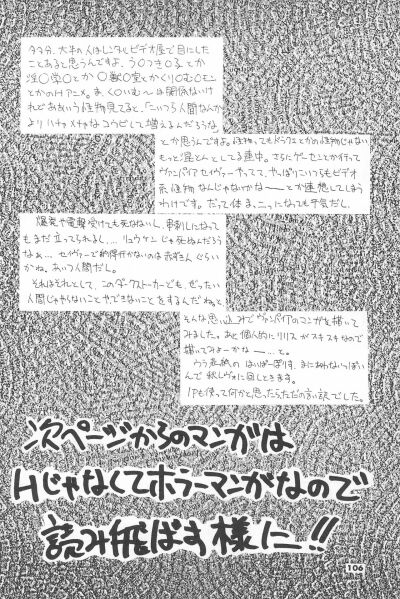 多分、大半の人はレンタルビデオ屋で目にした
ことあると思うんですよ、う○つき○子とか
淫○学○とか○獣○室とかくり○む○モン
とかのHアニメ。ま、く○いむ〜は関係ないけ
れどああいう怪物見てると、「こいつら人間なんか
よりハチャメチャなコウビして増えるんだろうな」
とか思うんですよ。怪物ってもドラクエとかの怪物じゃない
もっと混とんとしてる連中。さらにゲーセンとか行って
ヴァンパイアセイヴァーやってて、やっぱりこいつらもビデオ
系怪物なんじゃないかなーーとか連想してしまう
わけです。だって体まっ二つになっても平気だし
爆発や電撃受けても死なないし、串刺しになって
もまだ立ってられるし…リュウケンじゃ死ぬんだろう
なぁ…セイヴァーで納得行かないのは赤ずきんぐらい
かね、あいつ人間だし。
それはそれとして、このダークストーカーでも、ぜったい
人間じゃやらないことやできないことをするんだね。と
そんな思い込みでヴァンパイアのマンガを描いて
みました。あと個人的にリリスがスキスキなので
描いてみよーかなーー…と。
うう表紙のはいぱーぼりす、まにあわないっぽい
んで秋レヴォに回しときます。
1Pも使って何かと思ったらただの言い訳でした。
次ページからのマンガは
Hじゃなくてホラーマンガなので
読み飛ばす様に…!!
106